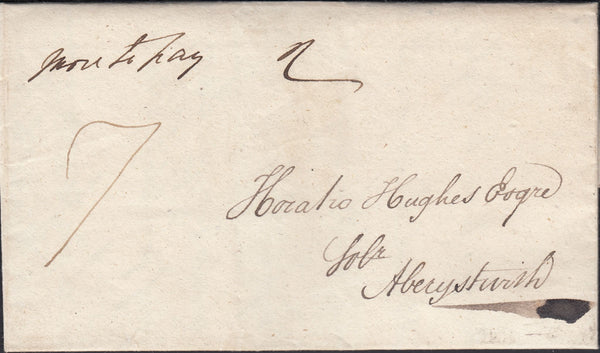 More to pay 2
7
Horatio Hughes Esqre
Solr
Aberystwith